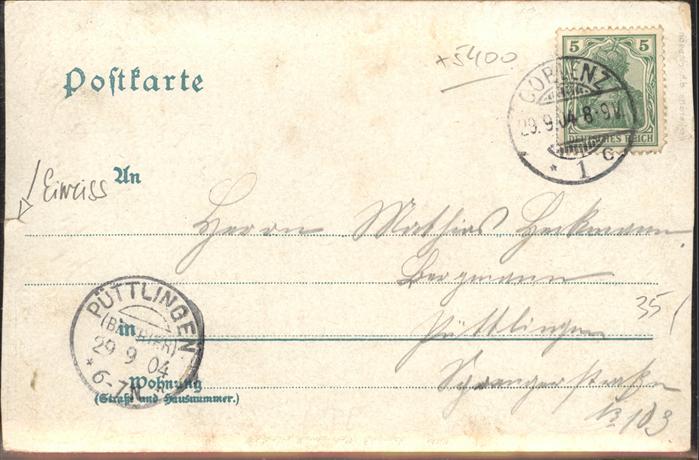 Postkarte
+5400
5 5
DEUTSCHES REICH
COBLENZ
29.9.04 8-9V.
* 1 c
Einriss
An
Herrn Mathias Heckmann
Bergmann
in Püttlingen
35
PÜTTLINGEN
29 9 04
* 6-7N *
Wohnung
(Straße und Hausnummer.)
No 103